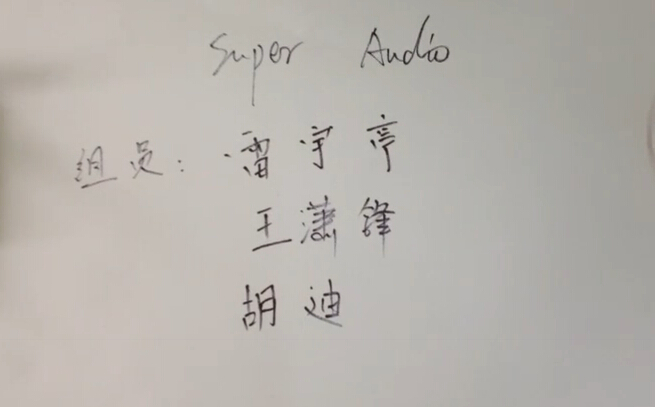 Super Audio
组员：雷宇亭
王潇锋
胡迪